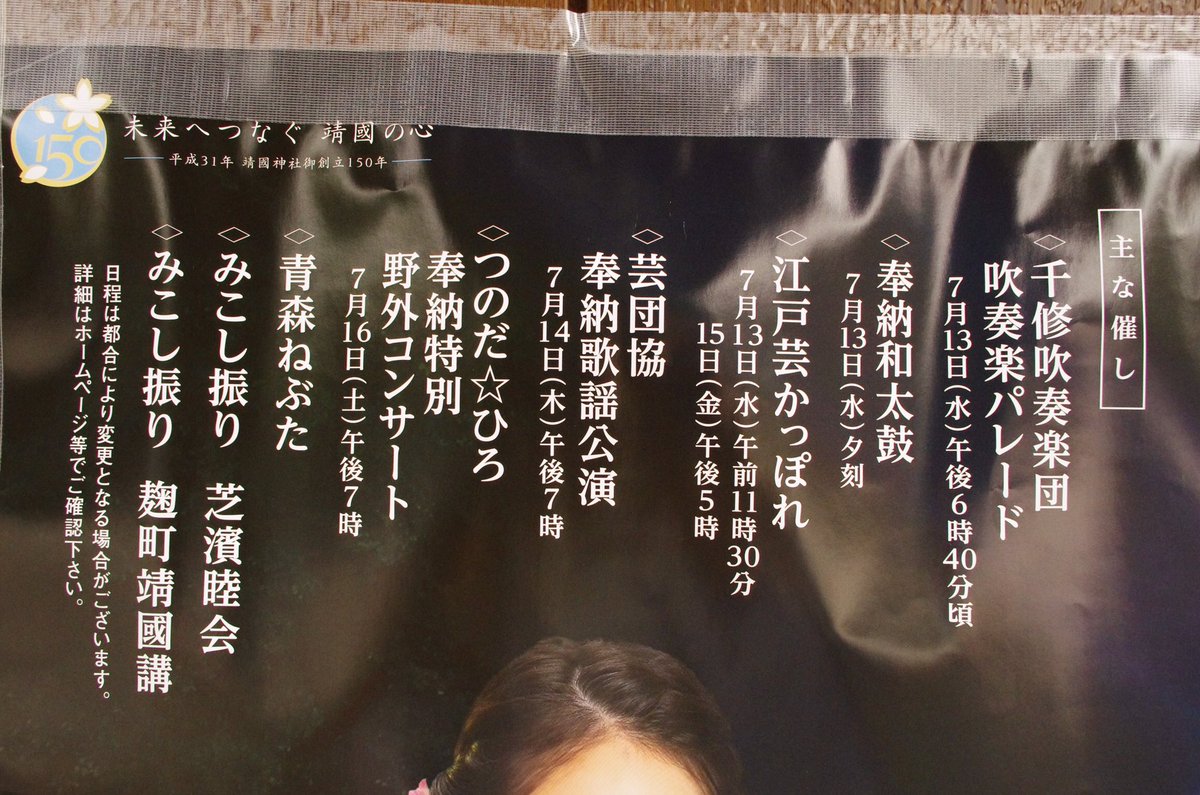 150
未来へつなぐ 靖國の心
平成31年 靖國神社御創立150年
主な催し
◇千修吹奏楽団
吹奏楽パレード
7月13日(水)午後6時40分頃
◇奉納和太鼓
7月13日(水)夕刻
◇江戸芸かっぽれ
7月13日(水)午前11時30分
15日(金)午後5時
◇芸団協
奉納歌謡公演
7月14日(木)午後7時
◇つのだ☆ひろ
奉納特別
野外コンサート
7月16日(土)午後7時
◇青森ねぶた
◇みこし振り 芝濱睦会
◇みこし振り 麹町靖國講
日程は都合により変更となる場合がございます。
詳細はホームページ等でご確認下さい。